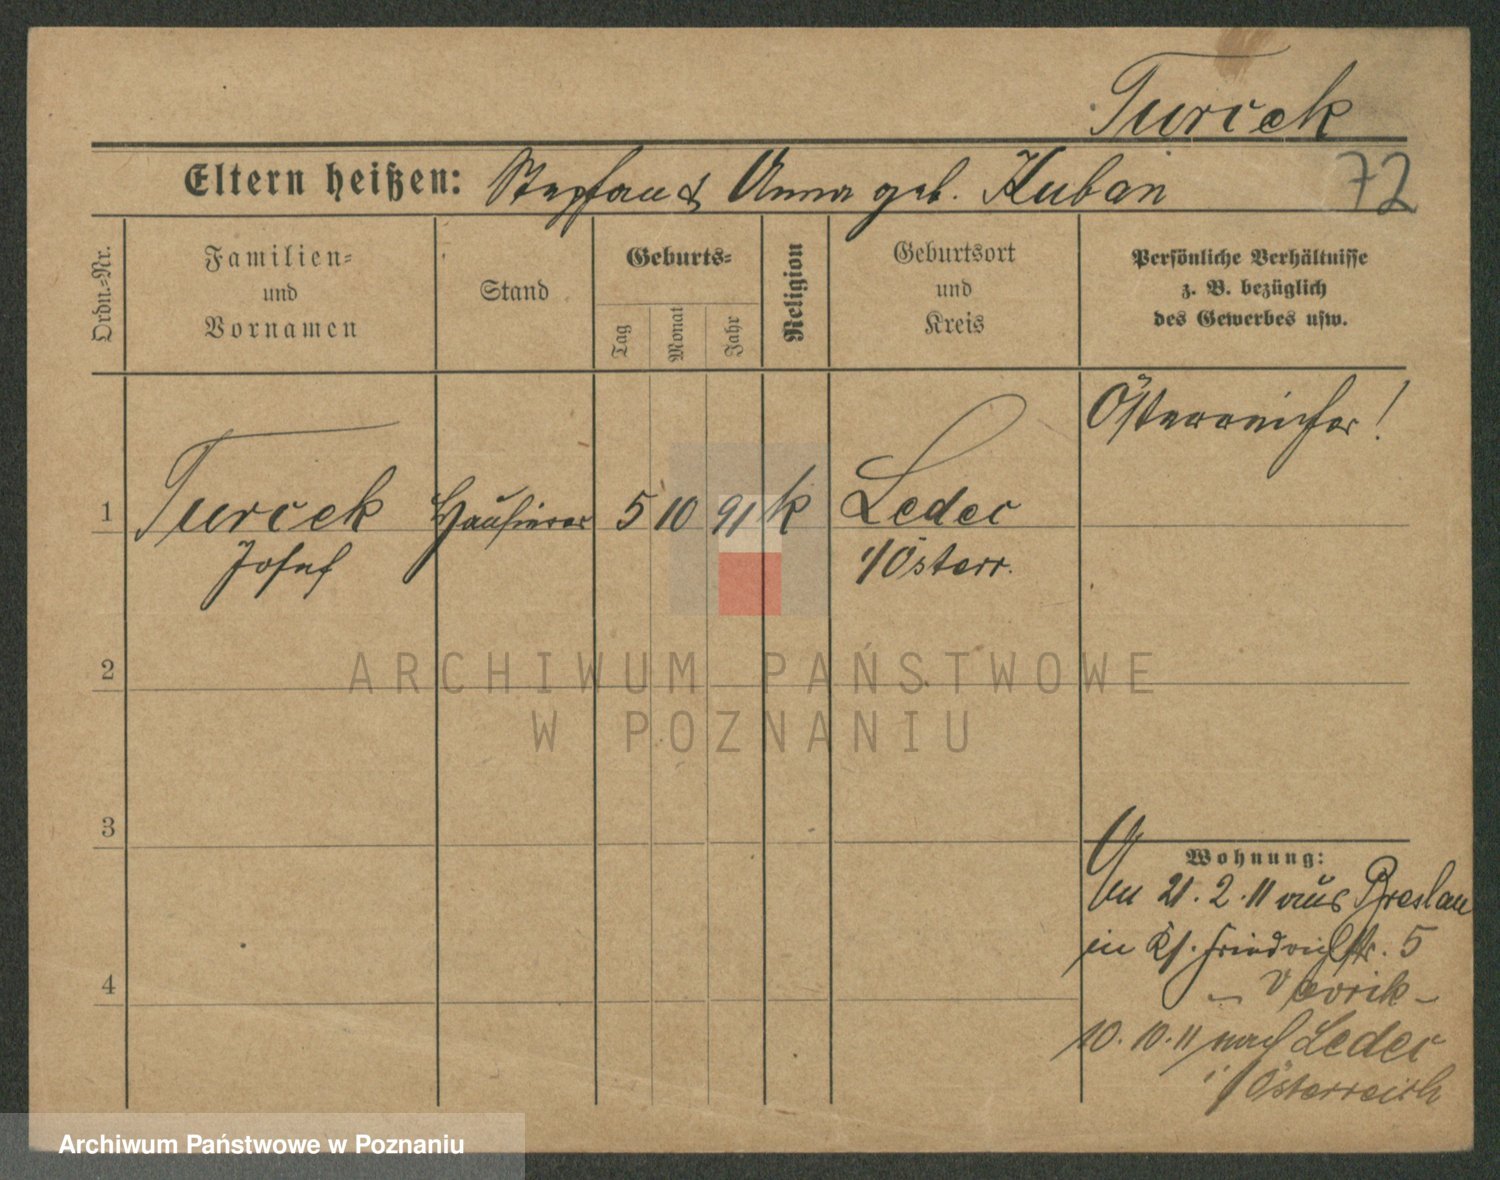 Turcek
Eltern heißen: Stephan & Anna geb. Kuban
72
Ordn.-Nr.
Familien-
und
Vornamen
Stand
Geburts-
Tag
Monat
Jahr
Religion
Geburtsort
und
Kreis
Persönliche Verhältnisse
z. B. bezüglich
des Gewerbes usw.
Österreicher!
1 Turcek Hausierer 5 10 91 k Ledec
Josef i/Österr.
2
ARCHIWUM PAŃSTWOWE
W POZNANIU
3
Wohnung:
An 21.2.11 aus Breslau
in Kl. Friedrichstr. 5
- Vavrik -
4
10.10.11 nach Ledec
i/Österreich
Archiwum Państwowe w Poznaniu